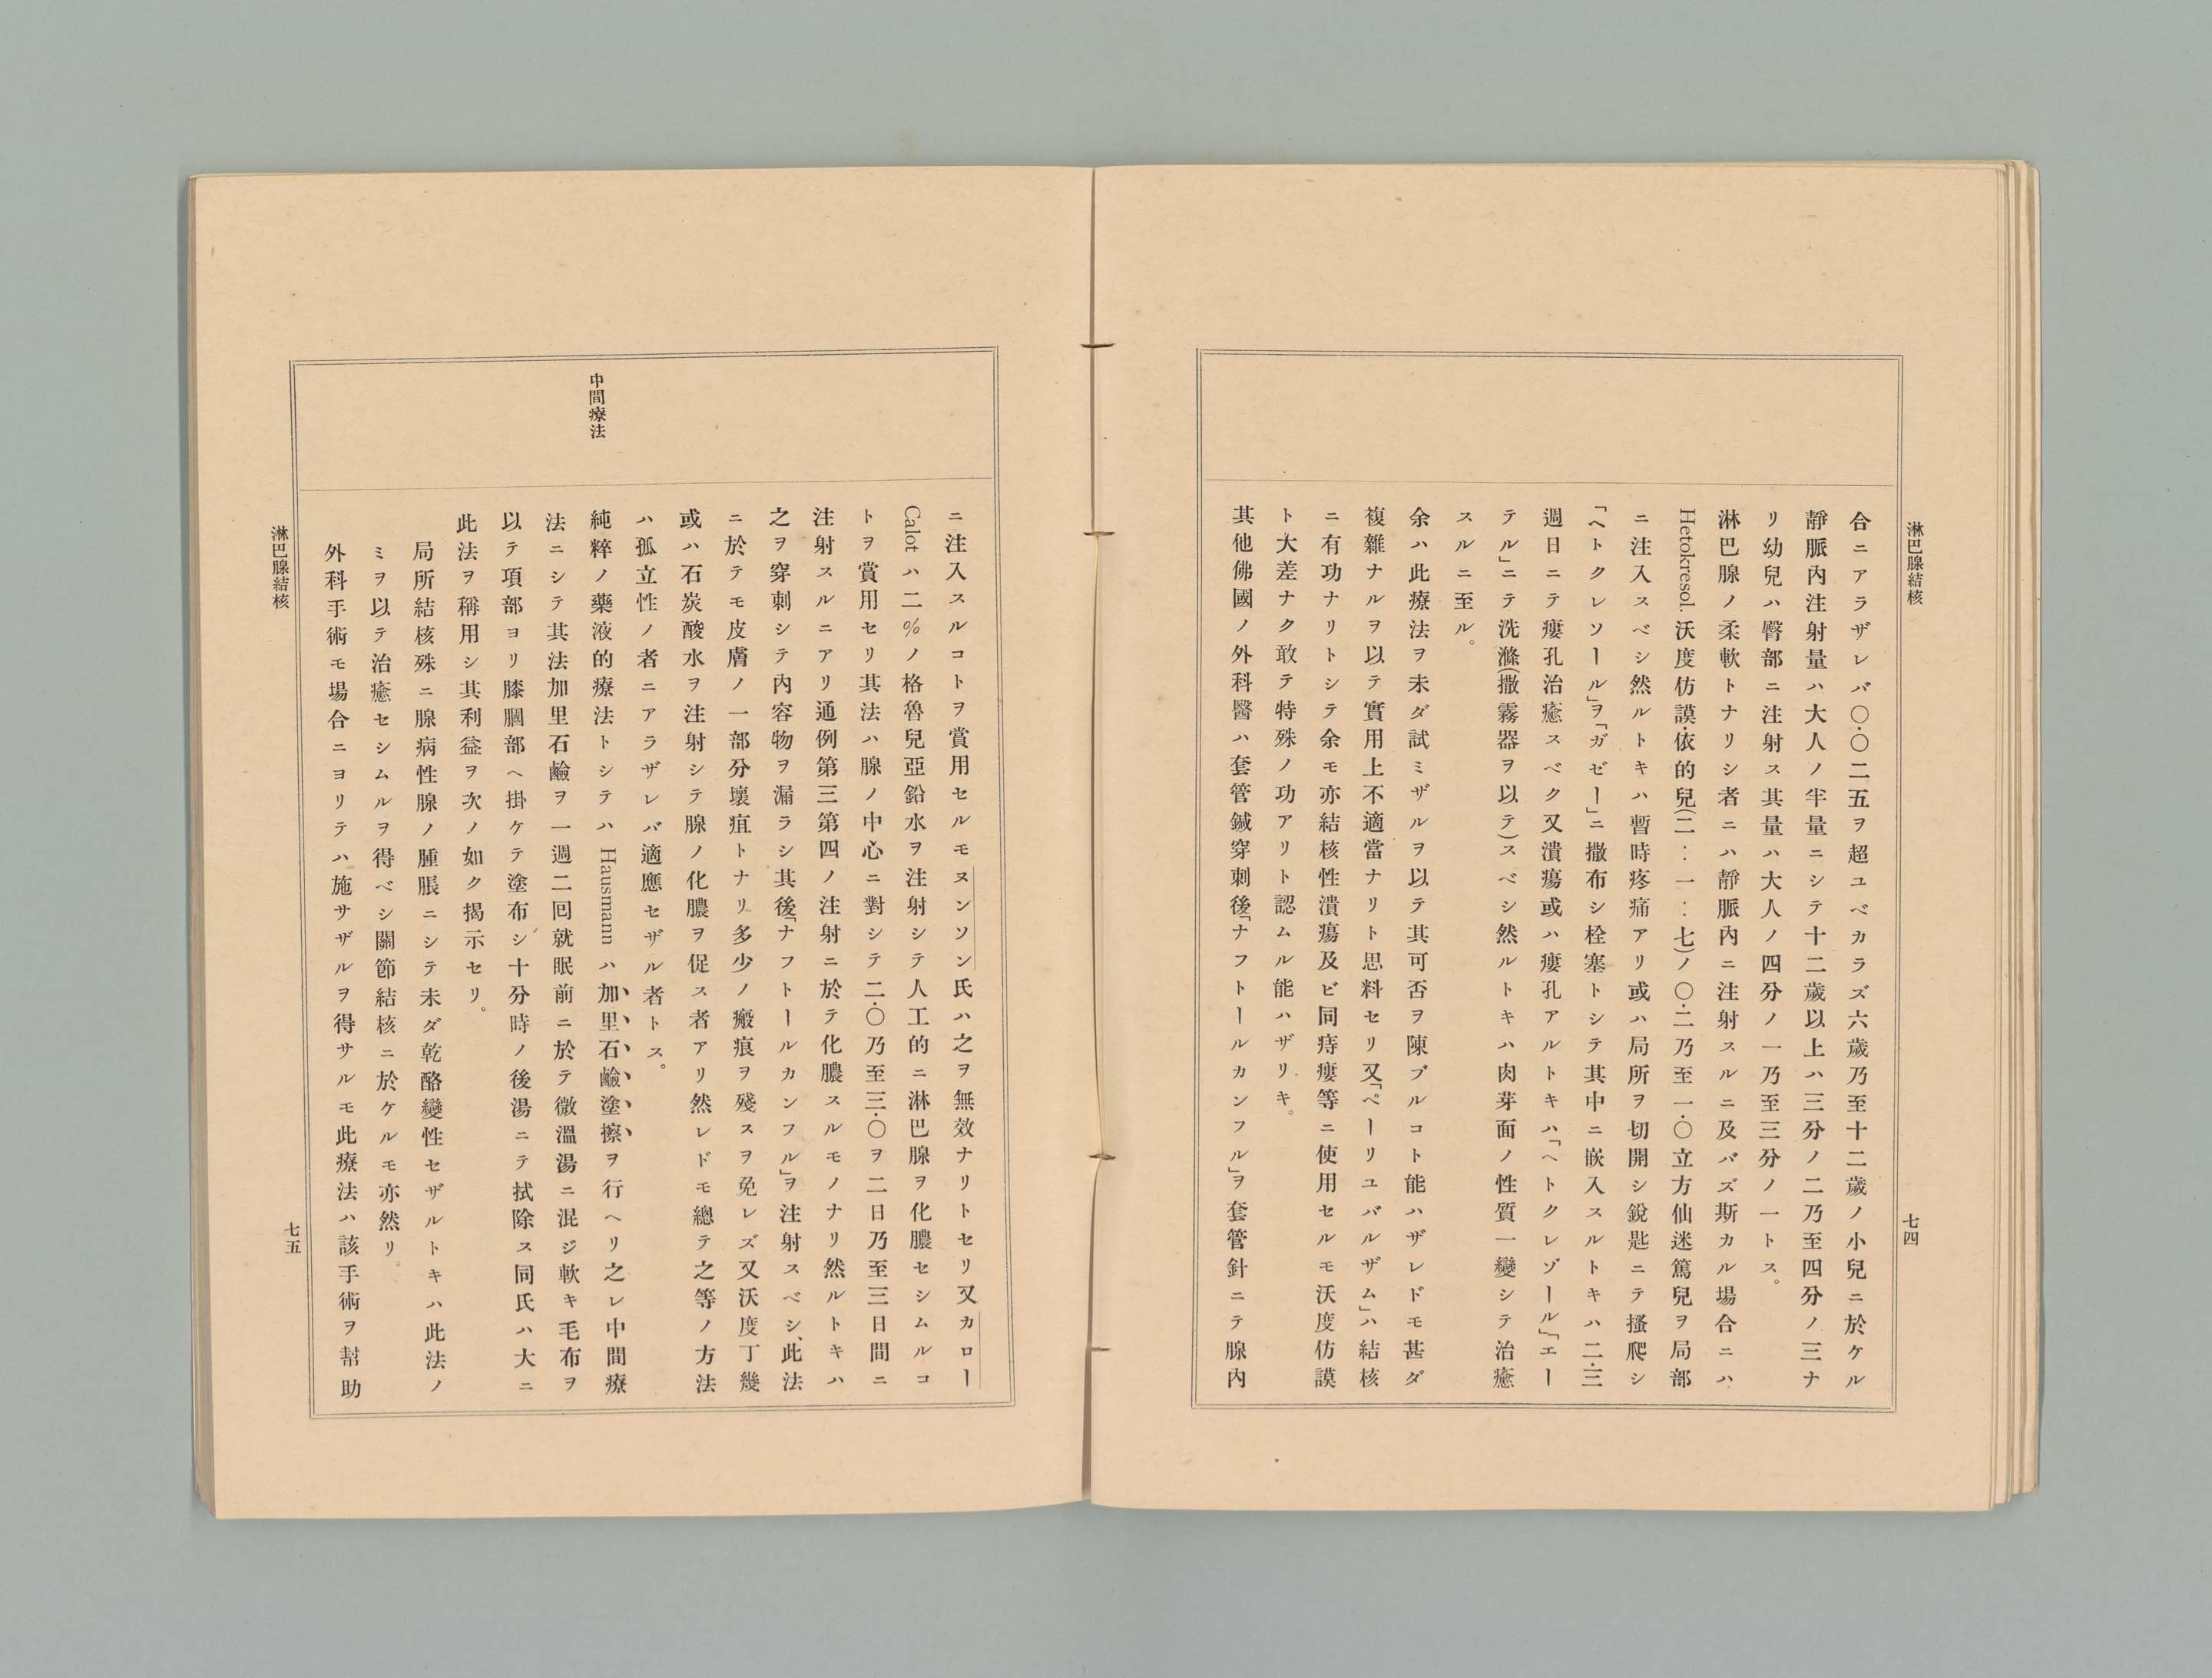 淋巴腺結核
七四
合ニアラザレバ〇・〇二五ヲ超ユベカラズ六歲乃至十二歲ノ小兒ニ於ケル
靜脈內注射量ハ大人ノ半量ニシテ十二歲以上ハ三分ノ二乃至四分ノ三ナ
リ幼兒ハ臀部ニ注射ス其量ハ大人ノ四分ノ一乃至三分ノ一トス。
淋巴腺ノ柔軟トナリシ者ニハ靜脈內ニ注射スルニ及バズ斯カル場合ニハ
Hetokresol. 沃度仿謨・依的兒(二：一：七)ノ〇・二乃至一・〇立方仙迷篤兒ヲ局部
ニ注入スベシ然ルトキハ暫時疼痛アリ或ハ局所ヲ切開シ銳匙ニテ搔爬シ
「ヘトクレソール」ヲ「ガゼー」ニ撒布シ栓塞トシテ其中ニ嵌入スルトキハ二・三
週日ニテ瘻孔治癒スベク又潰瘍或ハ瘻孔アルトキハ「ヘトクレゾール」「エー
テル」ニテ洗滌(撒霧器ヲ以テ)スベシ然ルトキハ肉芽面ノ性質一變シテ治癒
スルニ至ル。
余ハ此療法ヲ未ダ試ミザルヲ以テ其可否ヲ陳ブルコト能ハザレドモ甚ダ
複雜ナルヲ以テ實用上不適當ナリト思料セリ又「ペーリユバルザム」ハ結核
ニ有功ナリトシテ余モ亦結核性潰瘍及ビ同痔瘻等ニ使用セルモ沃度仿謨
ト大差ナク敢テ特殊ノ功アリト認ムル能ハザリキ。
其他佛國ノ外科醫ハ套管鍼穿刺後「ナフトールカンフル」ヲ套管針ニテ腺內
ニ注入スルコトヲ賞用セルモヌンソン氏ハ之ヲ無效ナリトセリ又カロー
Calot ハ二%ノ格魯兒亞鉛水ヲ注射シテ人工的ニ淋巴腺ヲ化膿セシムルコ
トヲ賞用セリ其法ハ腺ノ中心ニ對シテ二・〇乃至三・〇ヲ二日乃至三日間ニ
注射スルニアリ通例第三第四ノ注射ニ於テ化膿スルモノナリ然ルトキハ
之ヲ穿刺シテ內容物ヲ漏ラシ其後「ナフトールカンフル」ヲ注射スベシ、此法
ニ於テモ皮膚ノ一部分壞疽トナリ多少ノ瘢痕ヲ殘スヲ免レズ又沃度丁幾
或ハ石炭酸水ヲ注射シテ腺ノ化膿ヲ促ス者アリ然レドモ總テ之等ノ方法
ハ孤立性ノ者ニアラザレバ適應セザル者トス。
中間療法
純粹ノ藥液的療法トシテハ Hausmann ハ加里石鹼塗擦ヲ行ヘリ之レ中間療
法ニシテ其法加里石鹼ヲ一週二囘就眠前ニ於テ微溫湯ニ混ジ軟キ毛布ヲ
以テ項部ヨリ膝膕部ヘ掛ケテ塗布シ十分時ノ後湯ニテ拭除ス同氏ハ大ニ
此法ヲ稱用シ其利益ヲ次ノ如ク揭示セリ。
局所結核殊ニ腺病性腺ノ腫脹ニシテ未ダ乾酪變性セザルトキハ此法ノ
ミヲ以テ治癒セシムルヲ得ベシ關節結核ニ於ケルモ亦然リ。
外科手術モ場合ニヨリテハ施サザルヲ得サルモ此療法ハ該手術ヲ幇助
淋巴腺結核
七五